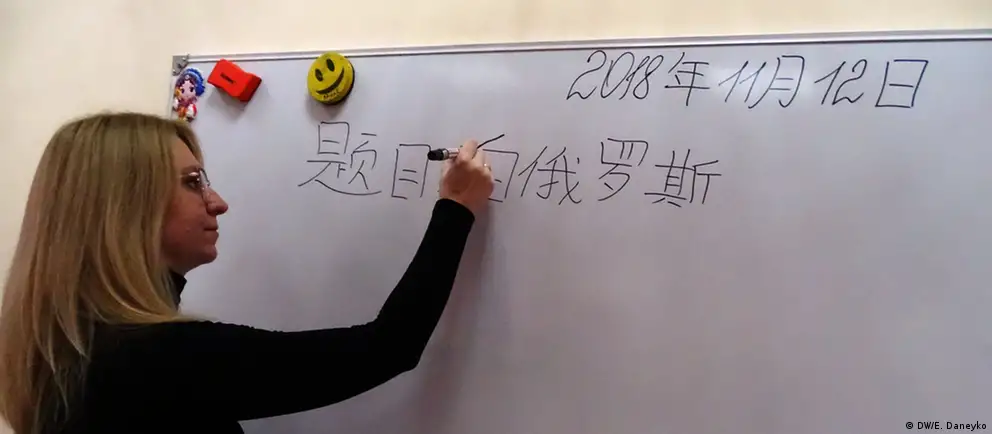 2018年11月12日
题目白俄罗斯
© DW/E. Daneyko